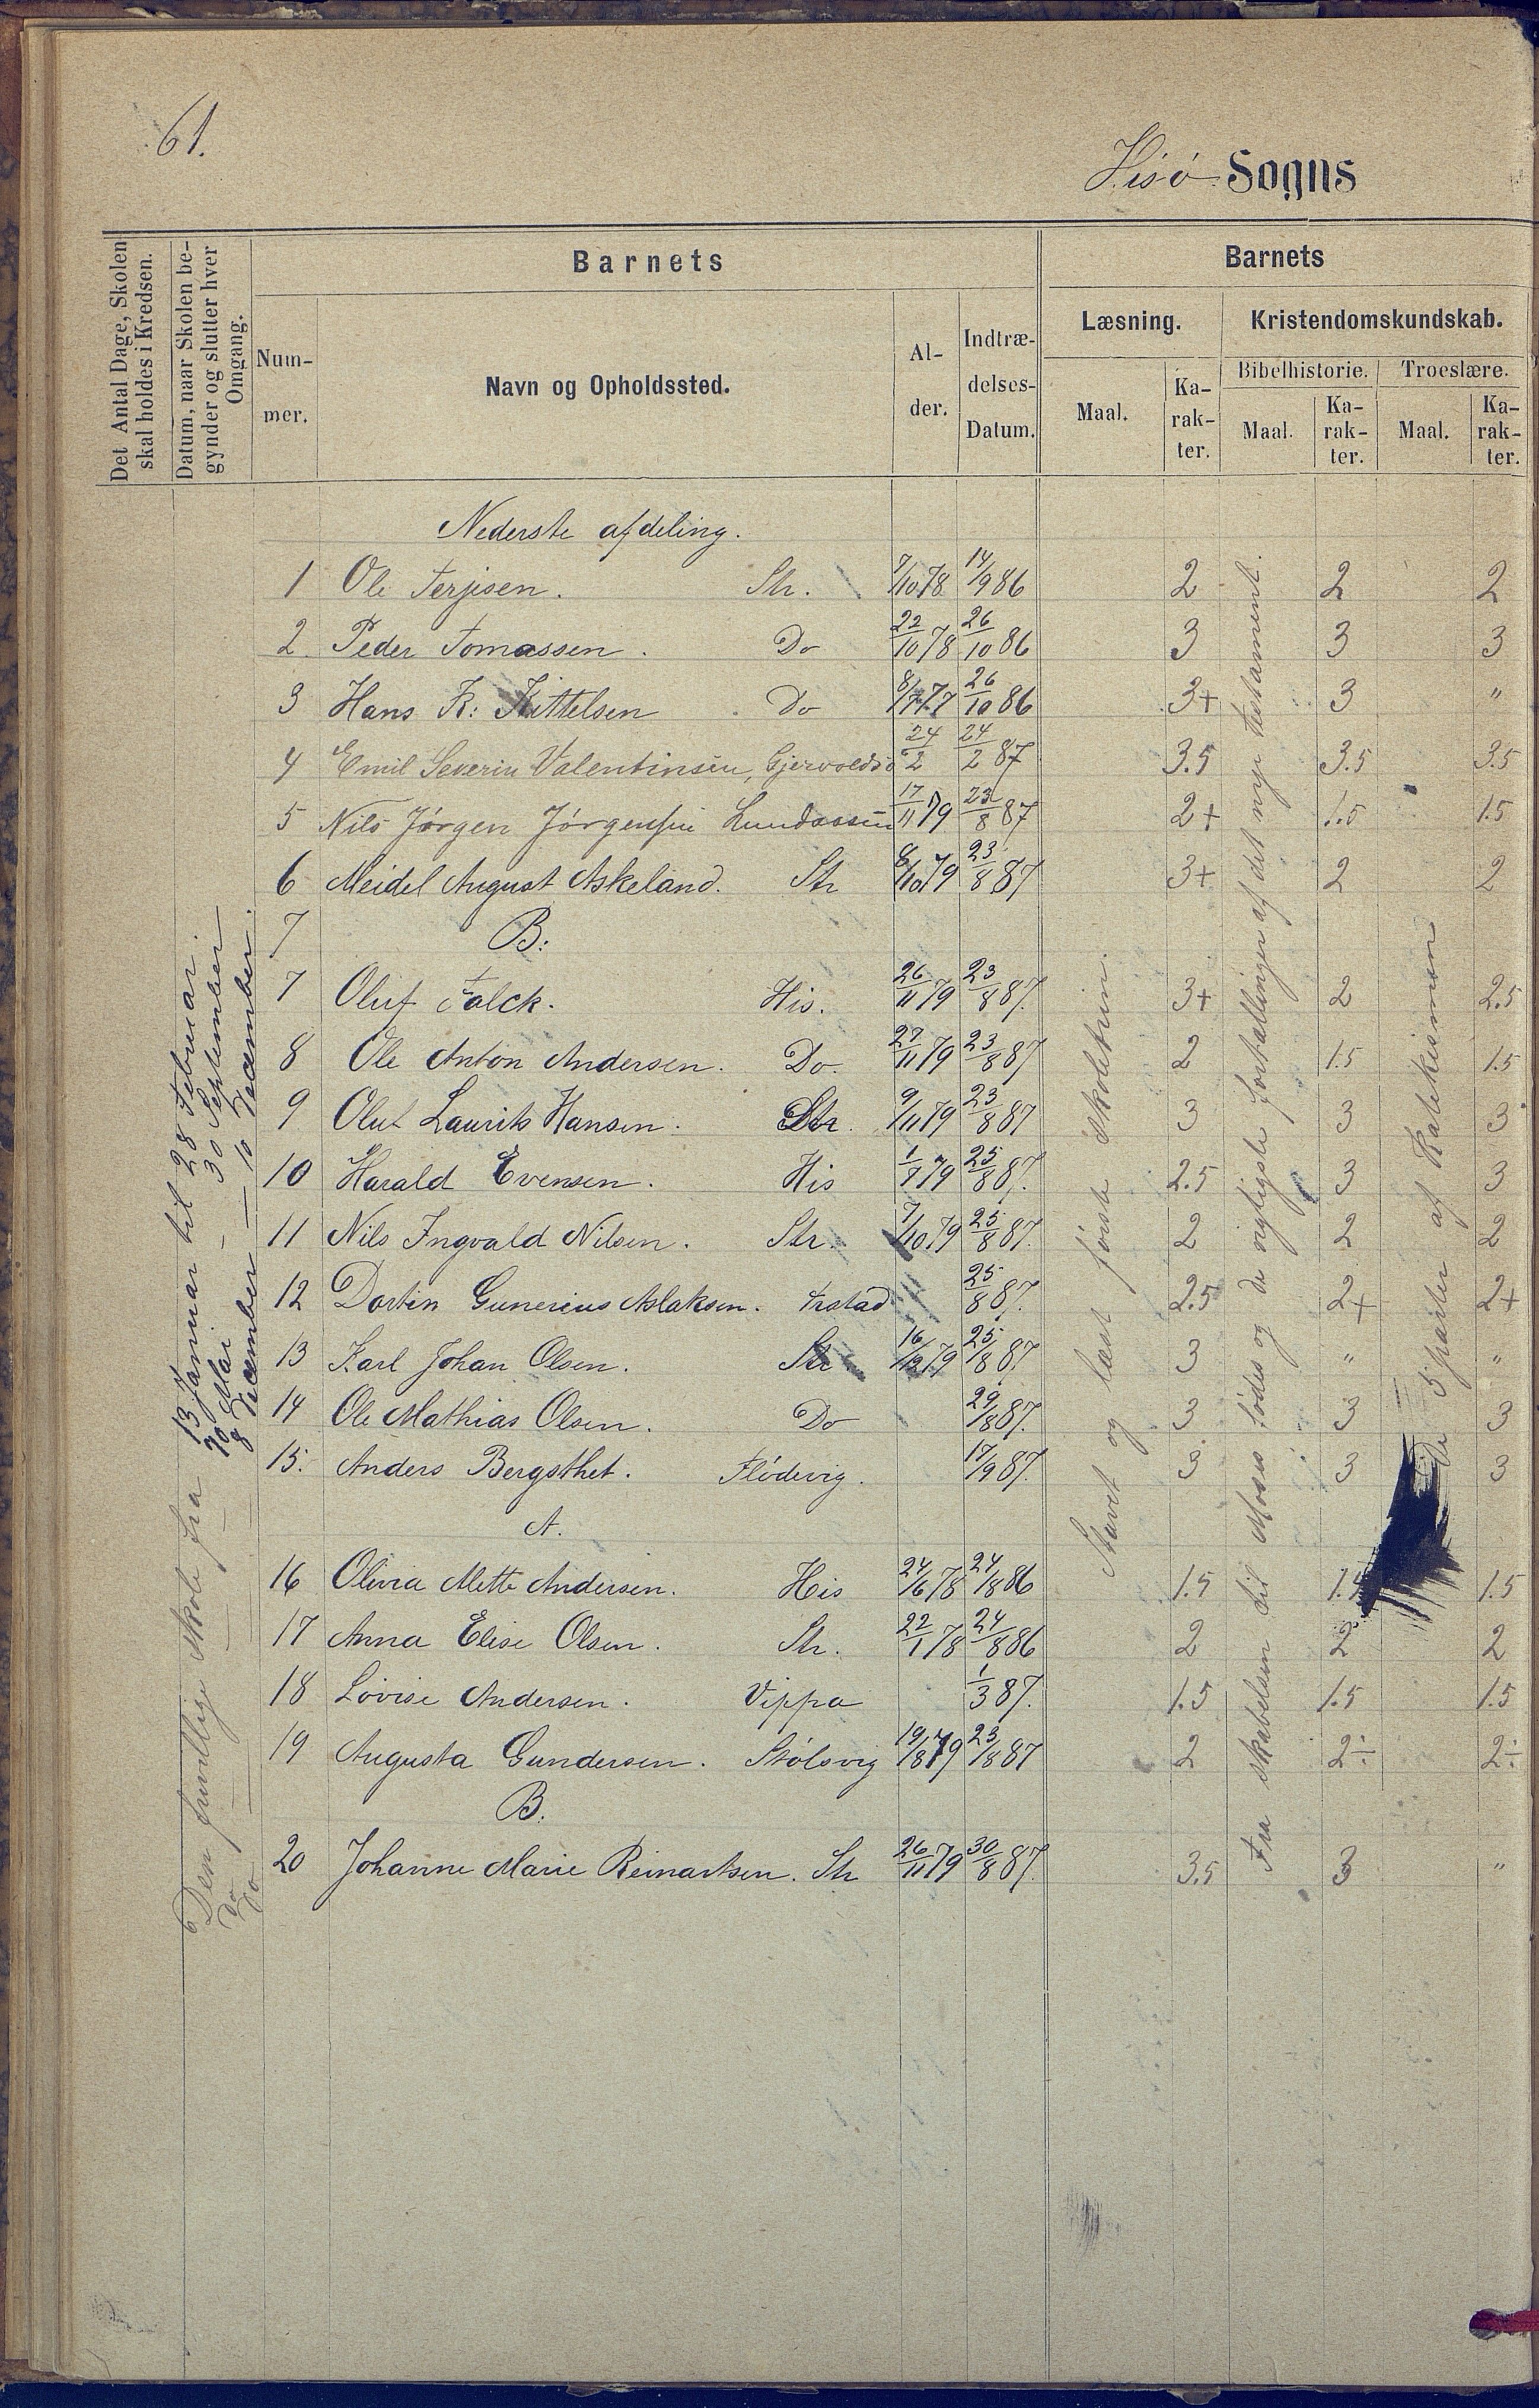 61.
Hisö Sogns
Det Antal Dage, Skolen skal holdes i Kredsen.
Datum, naar Skolen begynder og slutter hver Omgang.
Barnets
Barnets
Num-mer.
Navn og Opholdssted.
Al-der.
Indtræ-delses-Datum.
Læsning.
Kristendomskundskab.
Bibelhistorie.
Troeslære.
Maal.
Ka-rak-ter.
Maal.
Ka-rak-ter.
Maal.
Ka-rak-ter.
Nederste afdeling.
1 Ole Terjesen. Str. 7/10 78 14/9 86 2 2 2
2 Peder Tomassen. Do 22/10 78 26/10 86 3 3 3
3 Hans K: Kittelsen Do 8/7 77 26/10 86 3+ 3 "
4 Emil Severin Valentinsen, Gjervoldsö 24/2 24/2 87 3.5 3.5 3.5
5 Nils Jørgen Jørgensen 17/11 79 23/8 87 2+ 1.5 1.5
6 Meidel August Askeland. Str 8/10 79 23/8 87 3+ 2 2
7 B:
7 Oluf Falck. His. 26/11 79 23/8 87. 3+ 2 2.5
8 Ole Anton Andersen. Do. 27/11 79 23/8 87 2 1.5 1.5
9 Oluf Laurits Hansen. Str. 9/11 79 23/8 87 3 3 3
10 Harald Evensen. His 79 25/8 87. 2.5 3 3
11 Nils Ingvald Nilsen. Str. 7/10 79 25/8 87. 2 2 2
12 Gunerius Aslaksen. 25/8 87. 2.5 2+ 2+
13 Karl Johan Olsen. Str 16/12 79 25/8 87. 3 " "
14 Ole Mathias Olsen. Do 29/8 87. 3 3 3
15. Anders Bergsthet. Flödevig. 17/9 87. 3 3 3
A.
16 Olivia Mette Andersen. His 24/6 78 24/8 86 1.5 1.5 1.5
17 Anna Elise Olsen. Str. 22/1 78 24/8 86 2 2 2
18 Lovise Andersen. Vippa 1/3 87. 1.5 1.5 1.5
19 Augusta Gundersen. Stölsvig 19/8 79 23/8 87 2 2÷ 2÷
B.
20 Johanne Marie Reinartsen. Str 26/11 79 30/8 87. 3.5 3 "
Den frivillige skole fra 13 Januar til 28 Februar.
Do — — 20 Mai — 30 September
Do — — 8 December — 10 December.
Stavet og læst første skoletrin.
Fra skabelsen til Moses fødes og de vigtigste fortællinger af det nye testament.
5 parter af Katekismen